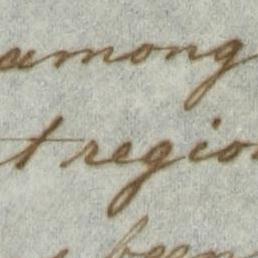 among
t regio
been